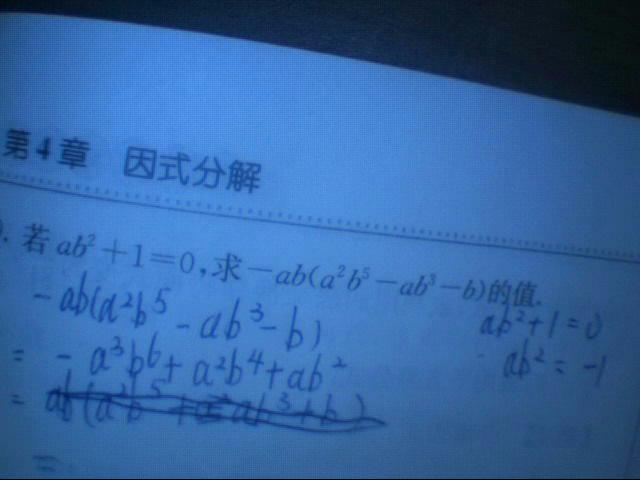 第4章 因式分解
. 若ab²+1=0,求-ab(a²b⁵-ab³-b)的值.
-ab(a²b⁵-ab³-b)
ab²+1=0
= -a³b⁶+a²b⁴+ab²
ab²=-1
=
=